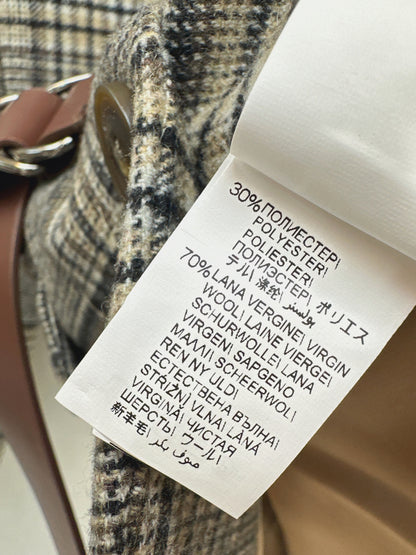 30%ПОЛИЕСТЕР\
POLYESTER\
POLIESTER\
ПОЛИЭСТЕР\ ポリエス
テル\ 涤纶\ بوليستر
70%LANA VERGINE\ VIRGIN
WOOL\ LAINE VIERGE\
SCHURWOLLE\ LANA
VIRGEN\ SAPGENO
MAMI\ SCHEERWOL\
REN NY ULD\
ЕСТЕСТВЕНА ВЪЛНА\
STRIŽNÍ VLNA\ LÂNA
VIRGINĂ\ ЧИСТАЯ
ШЕРСТЬ\ ウール\
新羊毛\ صوف بكر\